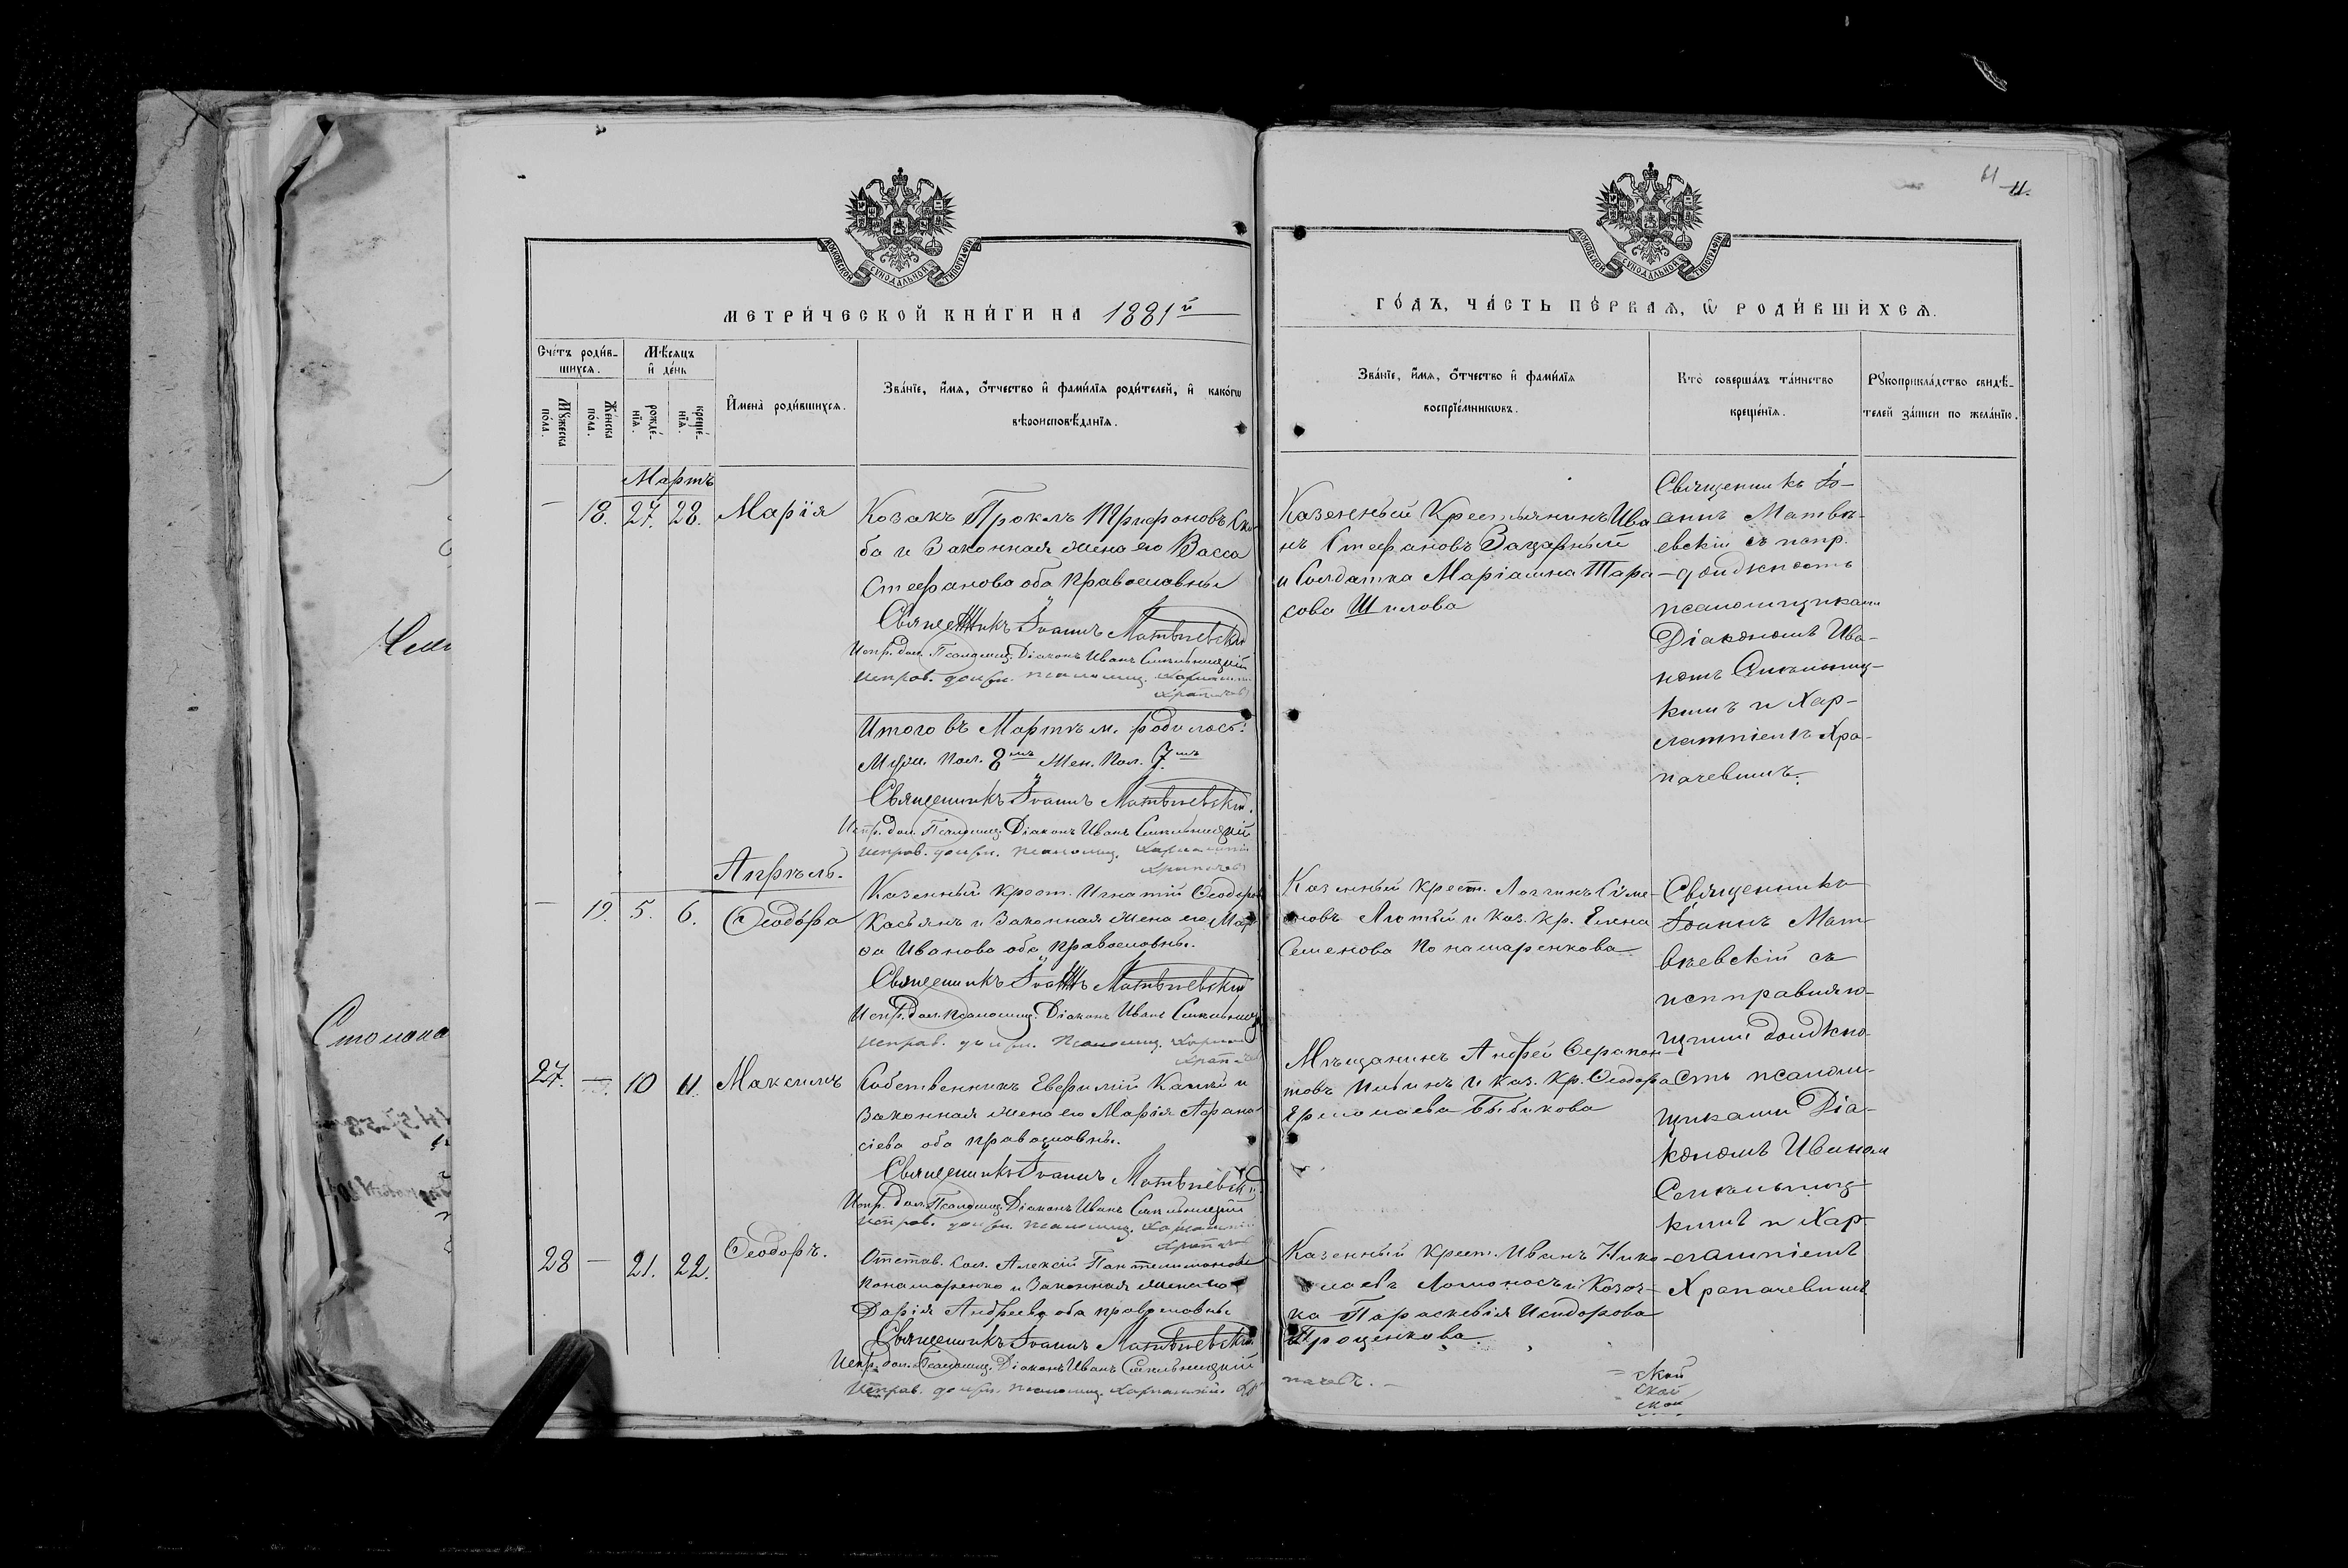 11.
МОСКОВСКОЙ СѴНОДАЛЬНОЙ ТИПОГРАФІИ
МОСКОВСКОЙ СѴНОДАЛЬНОЙ ТИПОГРАФІИ
МЕТРИ́ЧЕСКОЙ КНИ́ГИ НА 1881й
ГО́ДЪ, ЧА́СТЬ ПЕ́РВАѦ, Ѡ РОДИ́ВШИХСѦ.
Сче́тъ роди́в-
шихсѧ.
Му́жеска по́ла.
Же́нска по́ла.
Мѣ́сѧцъ
и҆ де́нь
рожде́-
нїѧ.
креще́-
нїѧ.
И҆мена̀ роди́вшихсѧ.
Зва́нїе, и҆́мѧ, ѻ҆́тчество и҆ фами́лїѧ роди́телей, и҆ како́гѡ
вѣроисповѣ́данїѧ.
Зва́нїе, и҆́мѧ, ѻ҆́тчество и҆ фами́лїѧ
воспрїе́мникѡвъ.
Кто̀ соверша́лъ та́инство
креще́нїѧ.
Рꙋкоприкла́дство свидѣ́-
телей за́писи по жела́нїю.
Мартъ
— 18. 27. 28. Марія
Козакъ Проклъ Трифоновъ
ба и Законная жена его Васса
Стефанова оба Православны
Священникъ Іоаннъ Матвѣевскій
Испр. дол. Псаломщ. Діаконъ Иванъ
Исправ. должн. псаломщ. Харлампій
Казенный Крестьянинъ Ива
нъ Стефановъ Защарный
и Солдатка Маріамна Тара
сова Шилова
Священникъ Іо-
аннъ Матвѣ-
евскій съ испр.
должность
псаломщиками
Діакономъ Ива-
номъ
кимъ и Хар-
лампіемъ Хра-
пачевимъ.
Итого въ Мартѣ м. родилось:
Муж. Пол. 8мь Жен. Пол. 7мь
Священникъ Іоаннъ Матвѣевскій.
Испр. дол. Псаломщ. Діаконъ Иванъ
Исправ. должн. псаломщ. Харлампій
Апрѣль.
— 19. 5. 6. Ѳеодора
Казенный Крест. Игнатій Ѳеодоров
Касьянъ и Законная жена его Мар
ѳа Иванова оба Православны.
Священникъ Іоаннъ Матвѣевскій
Испр. дол. псаломщ. Діаконъ Иванъ
Исправ. должн. псаломщ.
Казенный Крест. Логгинъ Симе
оновъ Лютый и Каз. Кр. Елена
Семенова Понамаренкова
Священникъ
Іоаннъ Мат
вѣевскій съ
исправляю-
щими должно-
сть псалом-
щиками Діа-
кономъ Иваном
кимъ и Хар-
лампіемъ
Храпачевимъ
27. — 10 11. Максимъ
Собственникъ Евфимій и
Законная жена его Марія Афана
сіева оба православны.
Священникъ Іоаннъ Матвѣевскій
Испр. дол. Псаломщ. Діаконъ Иванъ
Исправ. должн. псаломщ. Харлампій
Мѣщанинъ Андрей Серапіон
товъ Ильинъ и каз. Кр. Ѳеодора
Ермолаева Бибикова
28 — 21. 22. Ѳеодоръ.
Отстав. Сол. Алексій Пантелимоновъ
Понамаренко и Законная жена его
Дарія Андреева оба православны
Священникъ Іоаннъ Матвѣевскій
Испр. дол. Псаломщ. Діаконъ Иванъ
Исправ. должн. псаломщ. Харлампій
Казенный Крест. Иванъ Нико
лаевъ Ломоносъ и Козач-
ка Параскевія Исидорова
Проценкова.